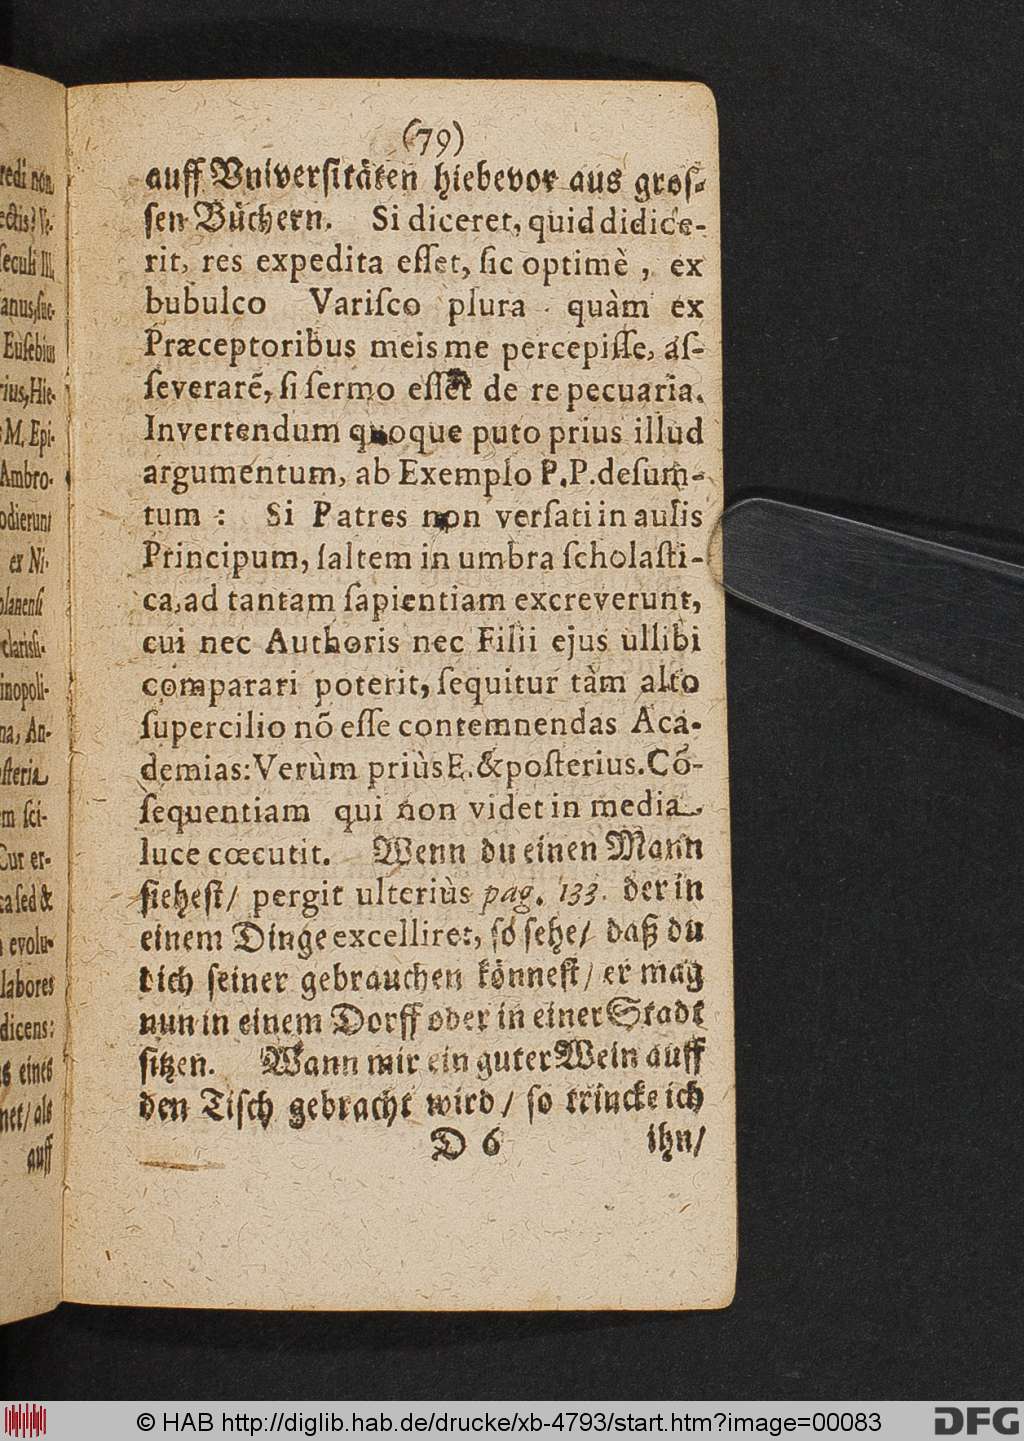 (79)
auff Vniversitäten hiebevor aus gros-
sen Büchern. Si diceret, quid didice-
rit, res expedita esſet, ſic optimè , ex
bubulco Variſco plura quàm ex
Præceptoribus meis me percepiſſe, aſ-
ſeverarẽ, ſi ſermo eſſet de re pecuaria.
Invertendum quoque puto prius illud
argumentum, ab Exemplo P.P. deſum-
tum : Si Patres non verſati in aulis
Principum, ſaltem in umbra ſcholaſti-
ca, ad tantam ſapientiam excreverunt,
cui nec Authoris nec Filii ejus ullibi
comparari poterit, ſequitur tàm alto
ſupercilio nõ eſſe contemnendas Aca-
demias: Verùm priùs E. & poſterius. Cõ-
ſequentiam qui non videt in media
luce cœcutit. Wenn du einen Mann
ſieheſt/ pergit ulteriùs pag. 133. der in
einem Dinge excelliret, ſo ſehe/ daß du
dich ſeiner gebrauchen könneſt/ er mag
nun in einem Dorff oder in einer Stadt
ſitzen. Wann mir ein guter Wein auff
den Tiſch gebracht wird/ ſo trincke ich
D 6 ihn/
redi non
ectis?
ſeculi III.
anus, ſuc-
Euſebius
rius, Hie-
M. Epi-
Ambro-
odierunt
ex Ni-
olanenſi
clarisſi-
inopoli-
na, An-
ſteria
m ſci-
Cur er-
ca ſed &
evolu-
labores
dicens:
s eines
net/ als
auff
© HAB http://diglib.hab.de/drucke/xb-4793/start.htm?image=00083
DFG